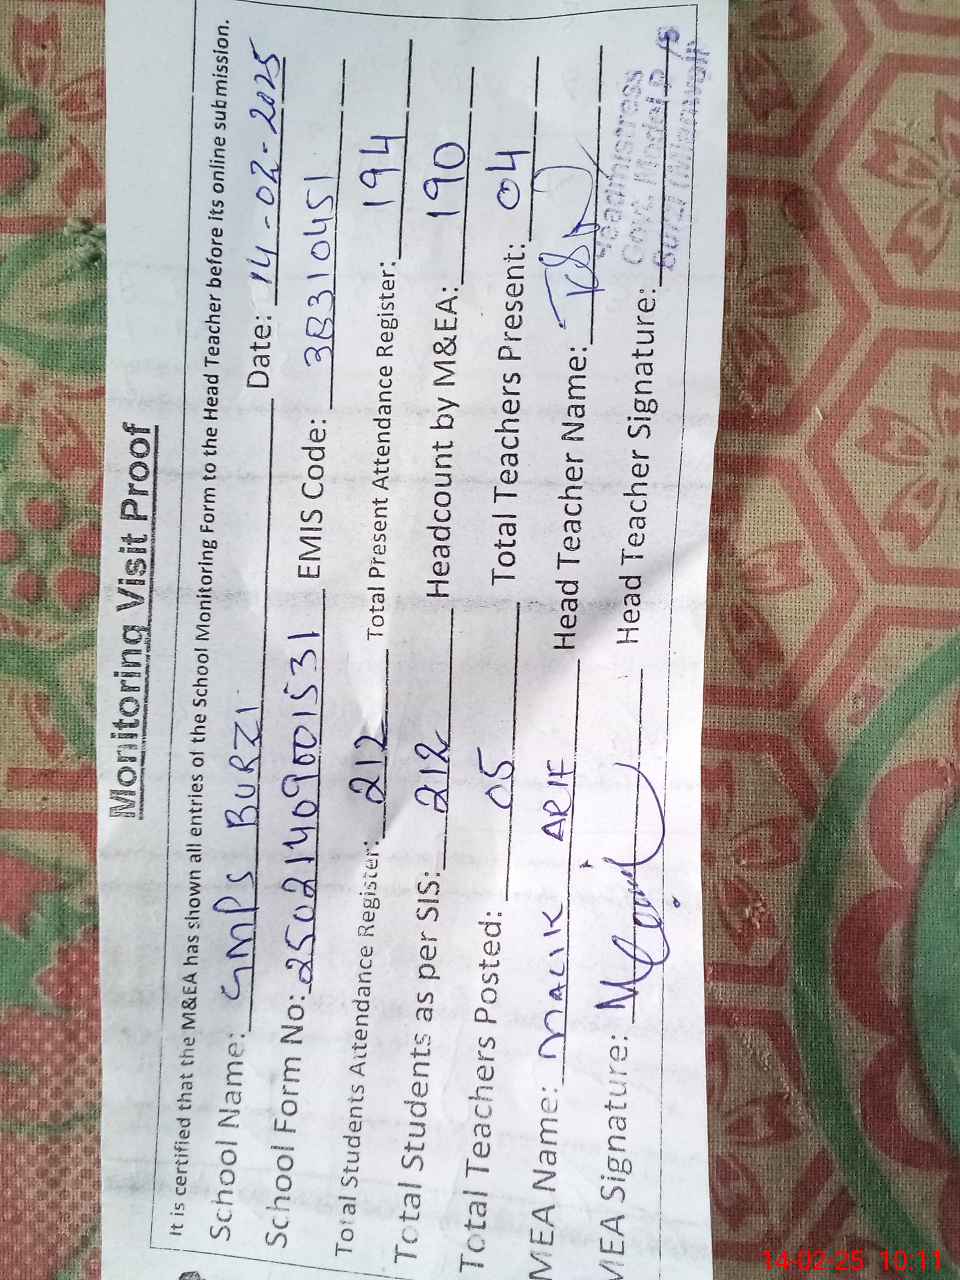 Monitoring Visit Proof
It is certified that the M&EA has shown all entries of the School Monitoring Form to the Head Teacher before its online submission.
School Name: GMPS BURZI Date: 14-02-2025
School Form No: 25021409001531 EMIS Code: 38310451
Total Students Attendance Register: 212 Total Present Attendance Register: 194
Total Students as per SIS: 212 Headcount by M&EA: 190
Total Teachers Posted: 05 Total Teachers Present: 04
MEA Name: MALIK ARIF Head Teacher Name:
MEA Signature: Head Teacher Signature:
Headmistress
Govt. Model P/S
Burzi (Mianwali)
14-02-25 10:11